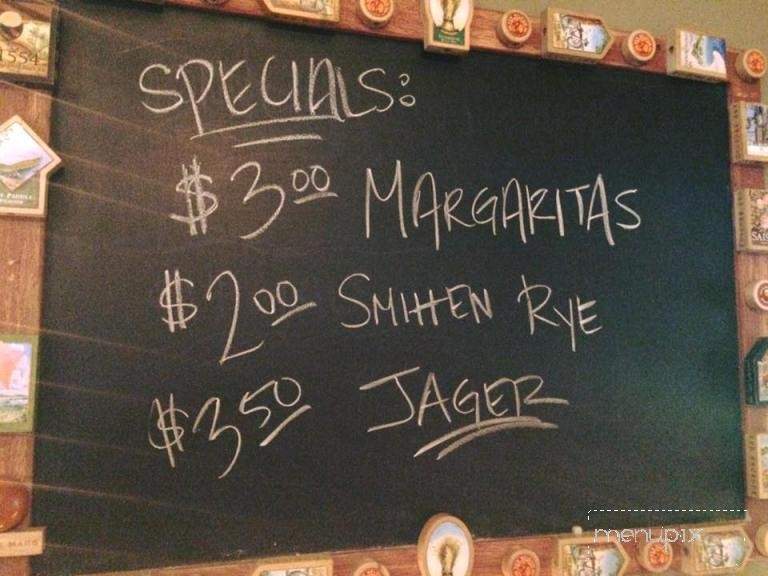 1554
SPECIALS:
$3.00 MARGARITAS
$2.00 SMITTEN RYE
$3.50 JAGER
menupix